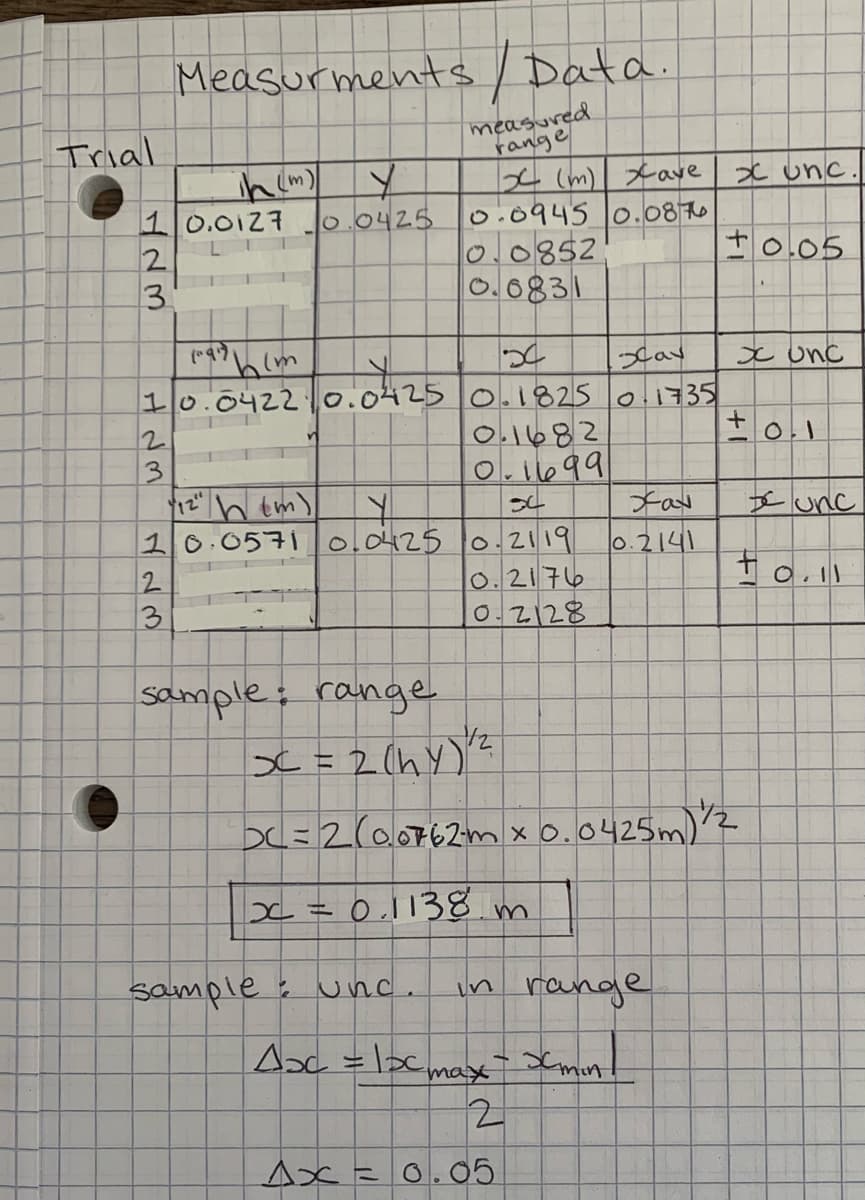 Measurments / Data.
measured
range
Trial
h (m) y x (m) x ave x unc.
1 0.0127 0.0425 0.0945 0.0876
2 0.0852 ± 0.05
3 0.0831
h (m y x x av x unc
1 0.0422 0.0425 0.1825 0.1735
2 0.1682 ± 0.1
3 0.1699
"12" h (m) y x x av x unc
1 0.0571 0.0425 0.2119 0.2141
2 0.2176 ± 0.11
3 0.2128
sample: range
x = 2(hy)^1/2
x = 2(0.0762m x 0.0425m)^1/2
x = 0.1138 m
sample: unc. in range
Δx = |x max - x min|
2
Δx = 0.05